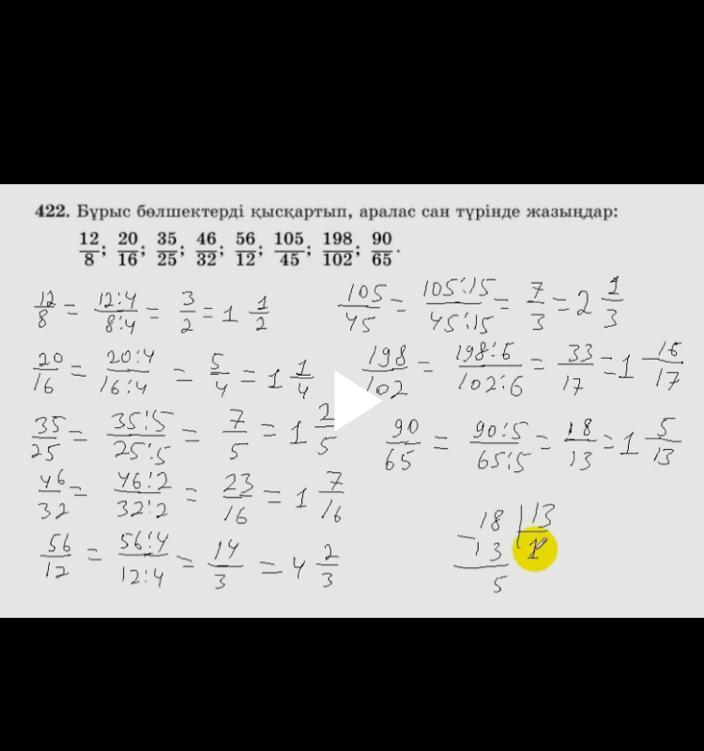 422. Бұрыс бөлшектерді қысқартып, аралас сан түрінде жазыңдар:
12/8; 20/16; 35/25; 46/32; 56/12; 105/45; 198/102; 90/65.
12/8 = 12:4/8:4 = 3/2 = 1 1/2
20/16 = 20:4/16:4 = 5/4 = 1 1/4
35/25 = 35:5/25:5 = 7/5 = 1 2/5
46/32 = 46:2/32:2 = 23/16 = 1 7/16
56/12 = 56:4/12:4 = 14/3 = 4 2/3
105/45 = 105:15/45:15 = 7/3 = 2 1/3
198/102 = 198:6/102:6 = 33/17 = 1 16/17
90/65 = 90:5/65:5 = 18/13 = 1 5/13
18 | 13
- 13 1
5